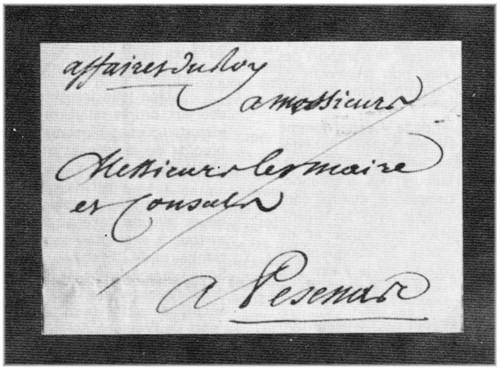 affaires du Roy
a messieurs
Messieurs les maire
et Consuls
A Pesenas